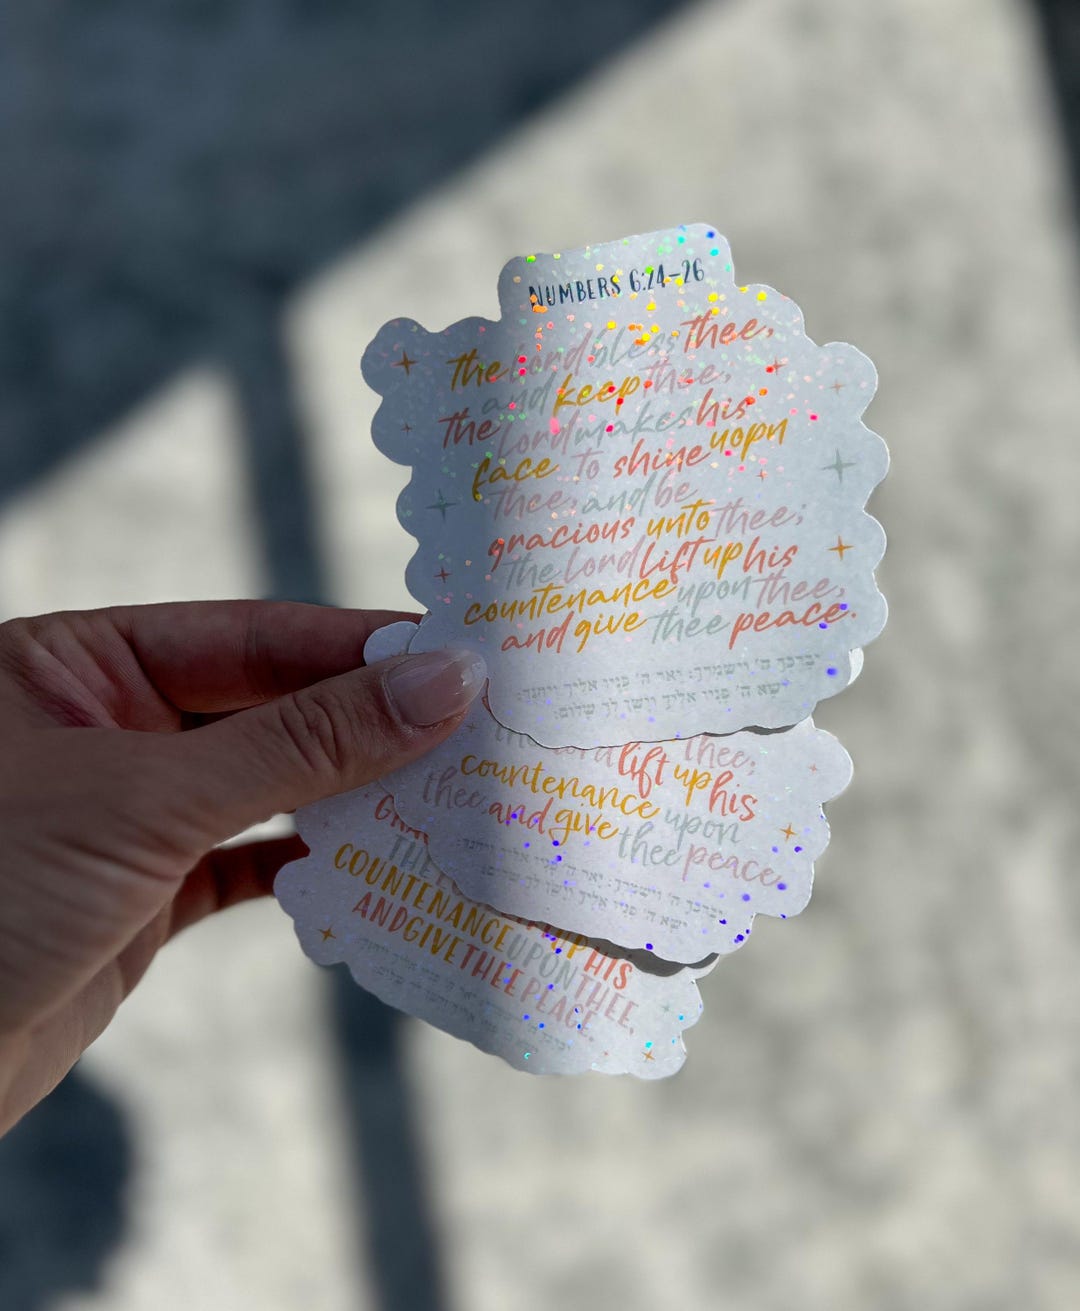 NUMBERS 6:24-26
the Lord bless thee,
and keep thee,
the Lord makes his
face to shine uopn
thee, and be
gracious unto thee;
the Lord lift up his
countenance upon thee,
and give thee peace.
יברכך ה' וישמרך: יאר ה' פניו אליך ויחנך:
ישא ה' פניו אליך וישן לך שלום:
lift up his thee;
countenance upon
thee, and give thee peace
יברכך ה' וישמרך: יאר ה' פניו אליך ויחנך:
ישא ה' פניו אליך וישן לך שלום:
THE UP HIS
COUNTENANCE UPON THEE,
AND GIVE THEE PEACE.